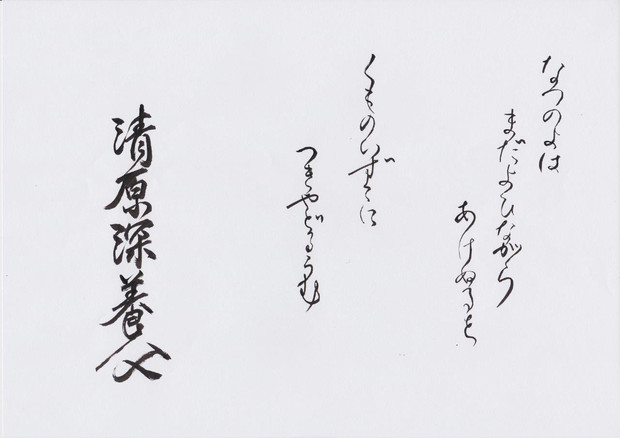 なつのよは
まだよひながら
あけぬるを
くものいづこに
つきやどるらむ
清原深養父